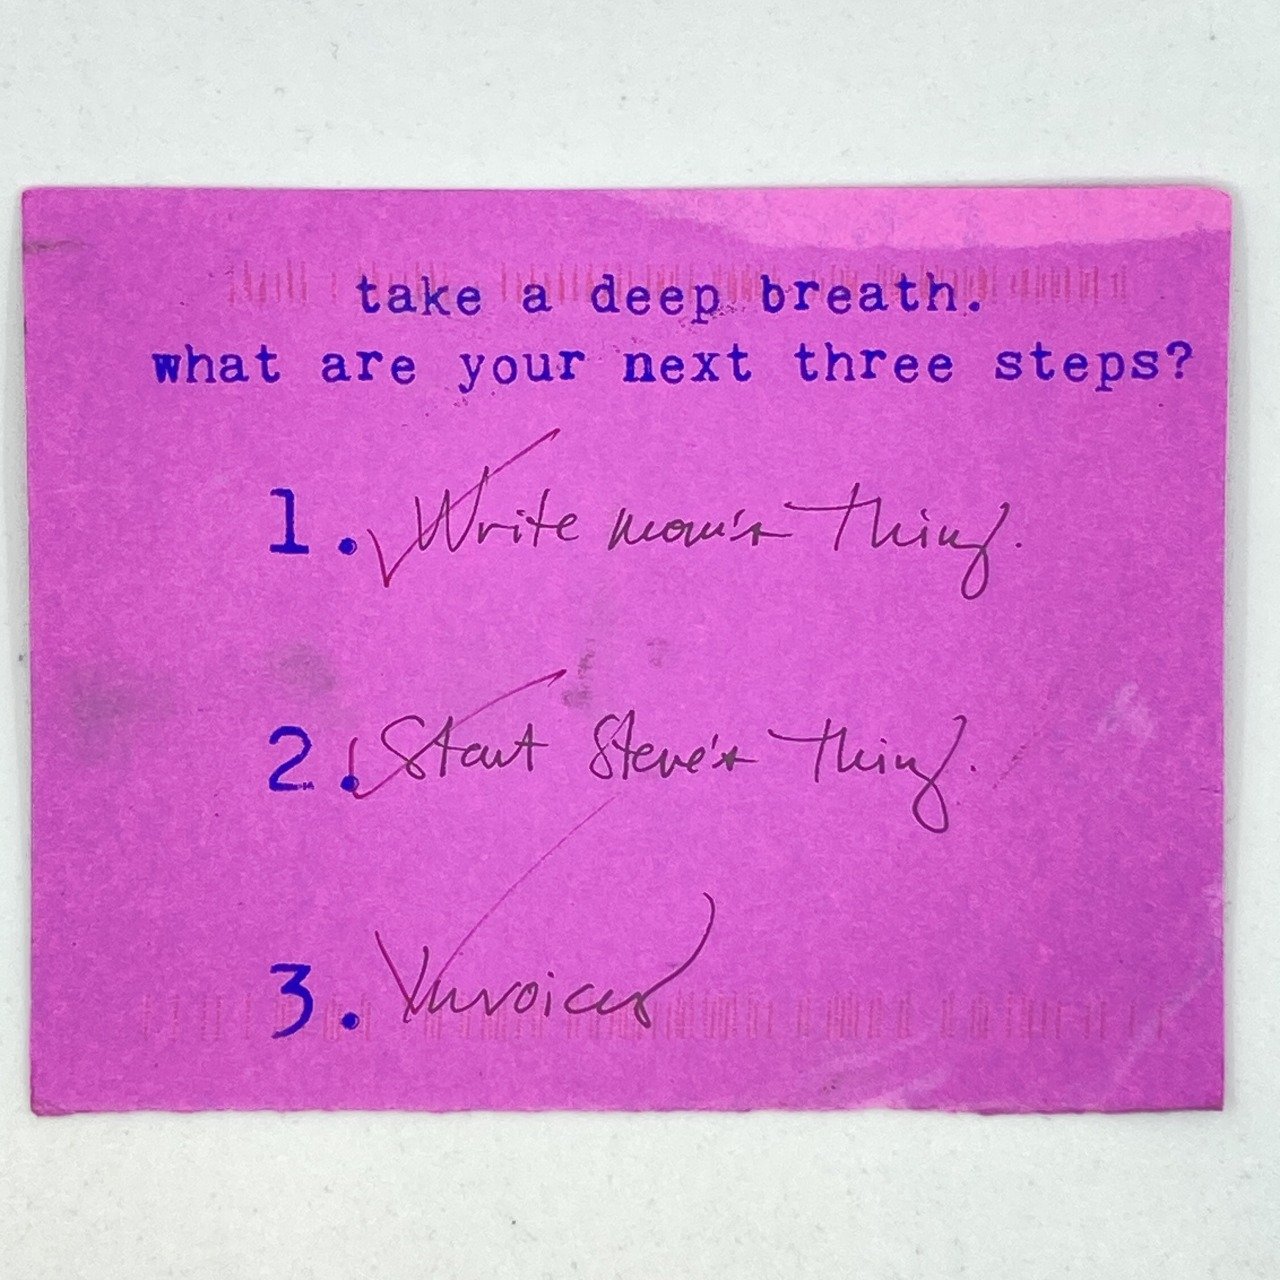 take a deep breath.
what are your next three steps?
1. Write mom's thing.
2. Start Steve's thing.
3. Invoices